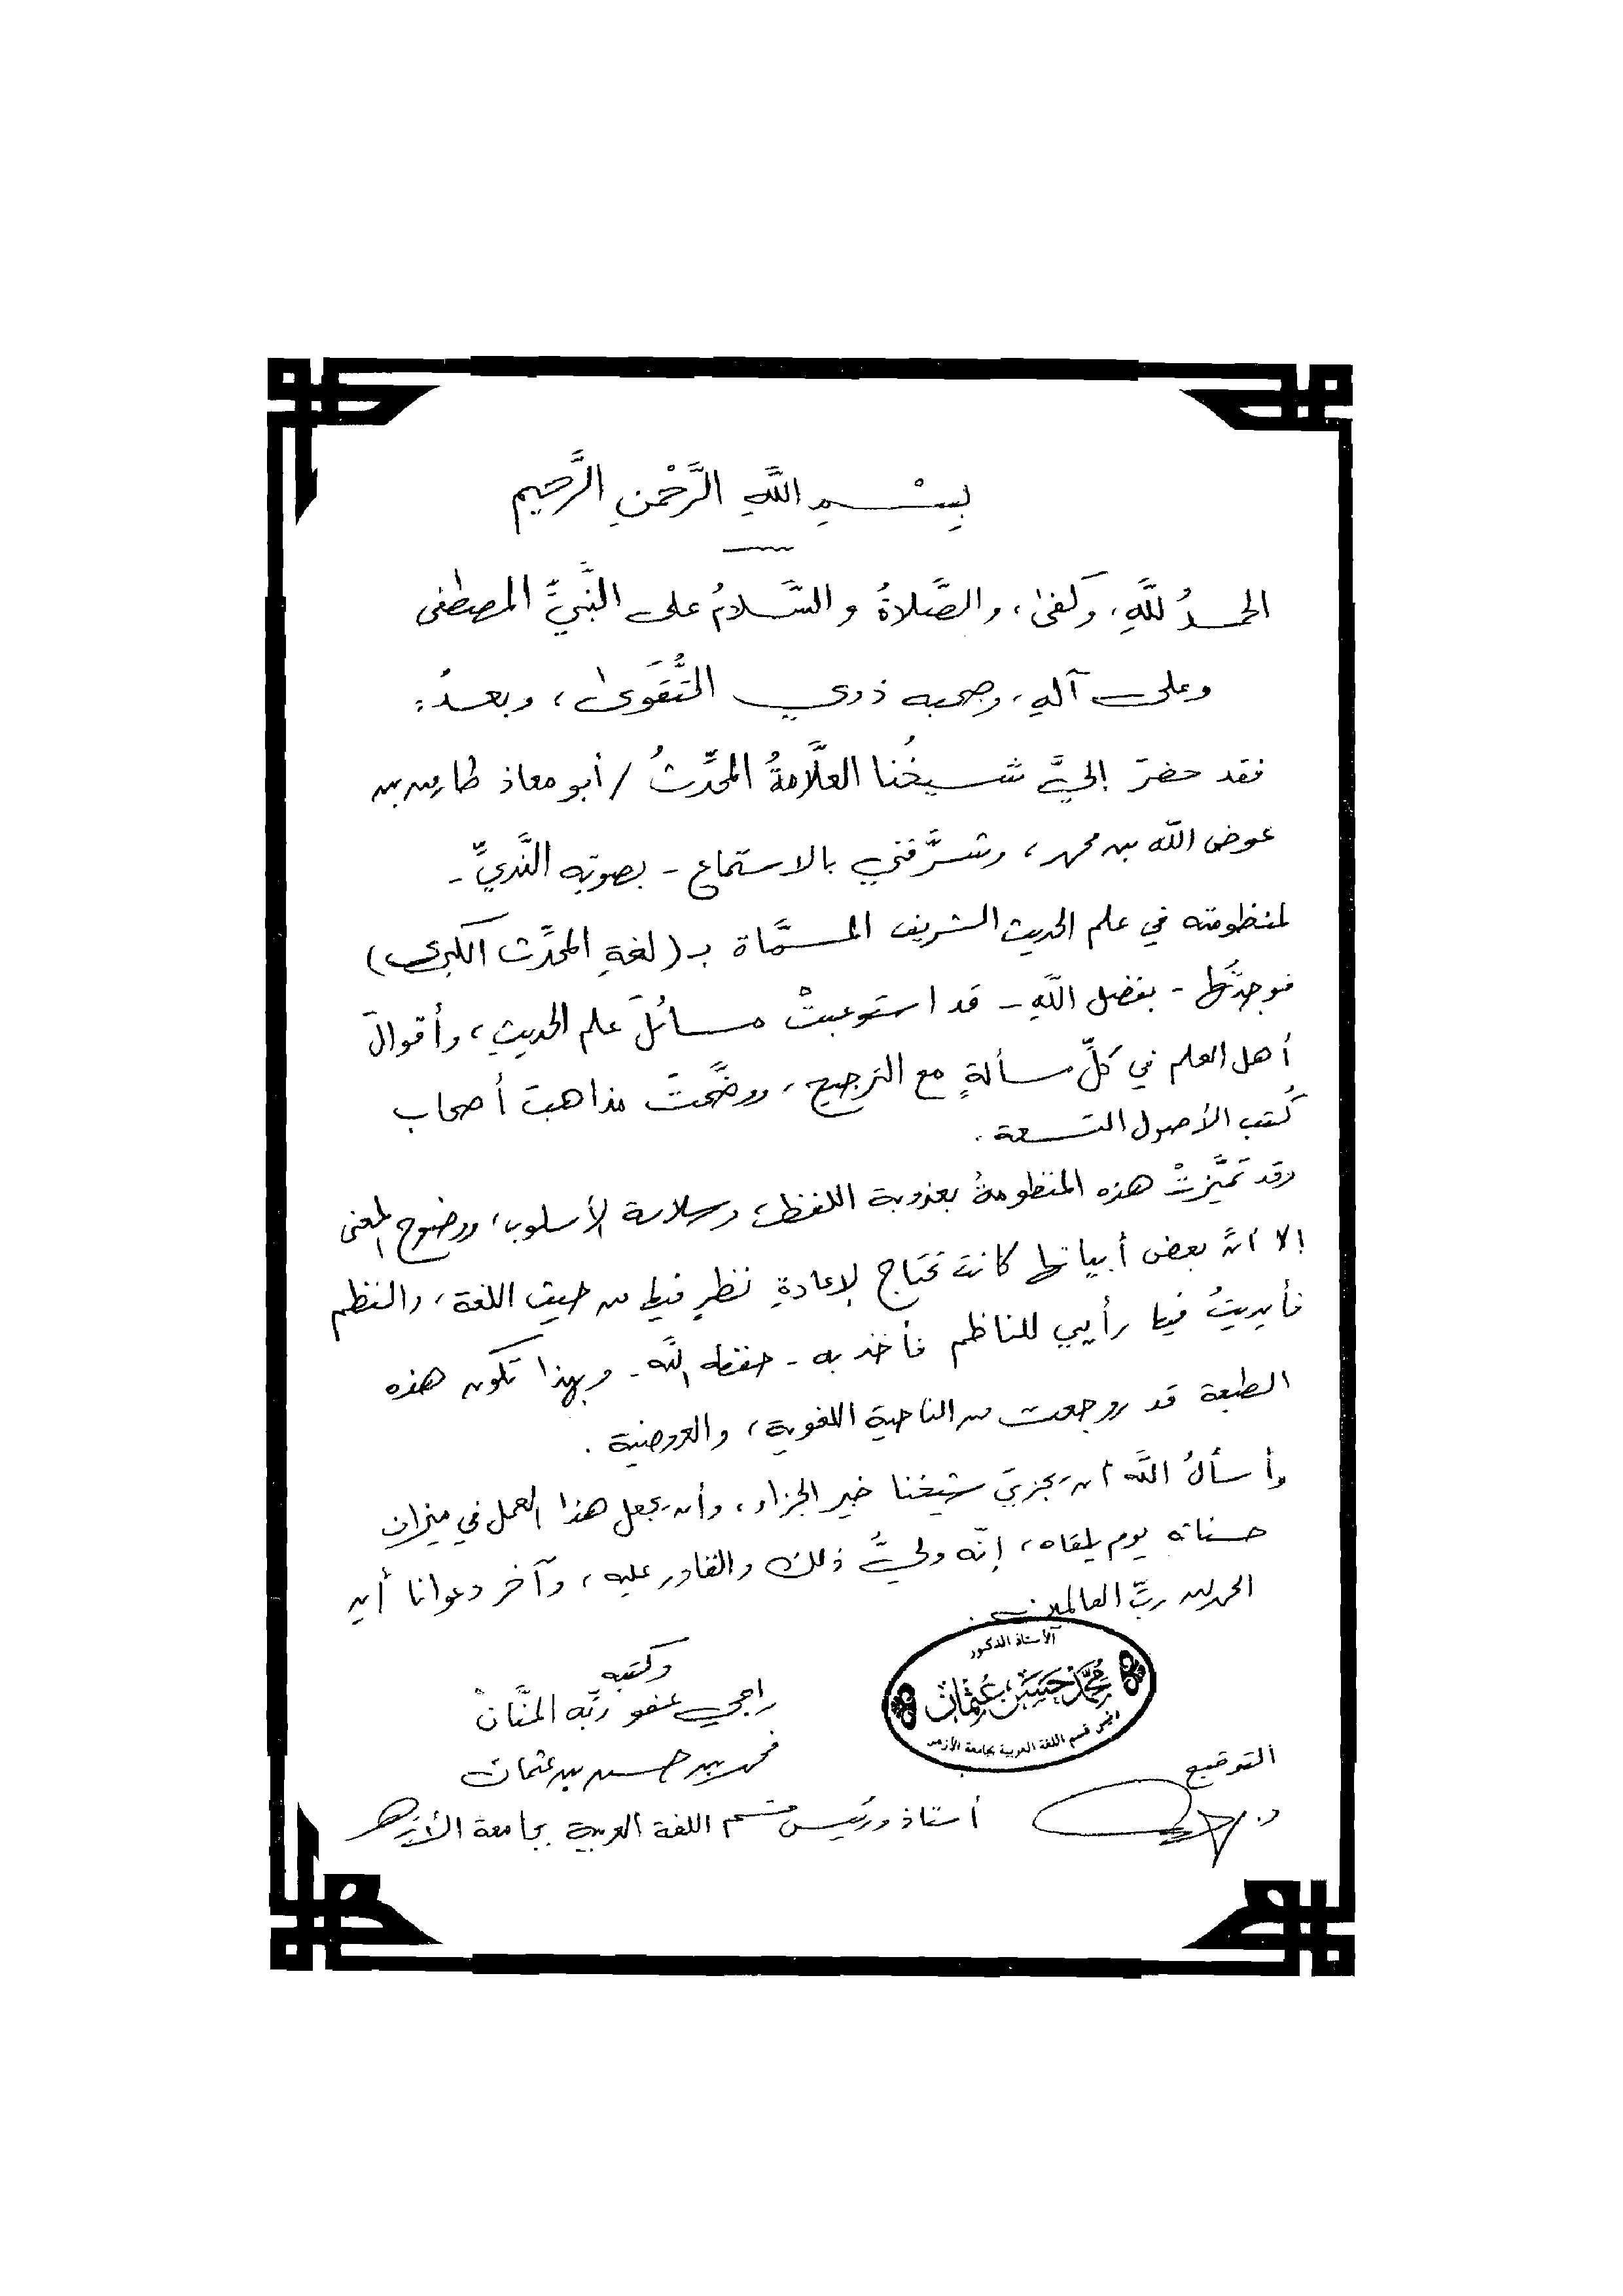 بِسْمِ اللَّهِ الرَّحْمنِ الرَّحيم
الحمدُ للَّهِ، وَكفىٰ، والصَّلاةُ والسَّلامُ على النَّبيِّ المصطفى
وعلى آلهِ، وصحبه ذوي التُّقَوىٰ، وبعدُ:
فقد حضرَ إليَّ شيخُنا العلَّامةُ المحدِّثُ / أبو معاذ طارق بن
عوض الله بن محمد، وشرَّفني بالاستماع - بصوتِه النَّديِّ -
لمنظومته في علم الحديث الشريف المسمَّاة بـ (لغةِ المحدِّث الكبرى)
فوجدتُها - بفضل اللَّهِ - قد استوعبتْ مسائلَ علم الحديثِ، وأقوالَ
أهل العلم في كلِّ مسألةٍ مع الترجيح، ووضَّحتْ مذاهبَ أصحاب
كُتب الأصول التسعة.
وقد تميَّزتْ هذه المنظومةُ بعذوبة اللفظ، وسلاسة الأسلوب، ووضوح المعنى
إلا أنَّ بعض أبياتها كانت تحتاج لإعادةِ نظرٍ فيها من حيث اللغة، والنظم
فأبديتُ فيها رأيي للناظم فأخذ به - حفظه اللَّه - وبهذا تكون هذه
الطبعة قد روجعت من الناحية اللغوية، والعروضية.
وأسألُ اللَّه أن يَجزيَ شيخنا خير الجزاء، وأن يجعل هذا العمل في ميزان
حسناته يوم يلقاه، إنّه وليُّ ذلك والقادر عليه، وآخر دعوانا أن
الحمد لله ربِّ العالمين.
وكتبه
راجي عفو ربِّه المنَّانْ
محمد بن حسن بن عثمان
أستاذ ورئيس قسم اللغة العربية بجامعة الأزهر
الأستاذ الدكتور
مُحَمَّد حَسَن عُثْمَان
رئيس قسم اللغة العربية بجامعة الأزهر
التوقيع
د.